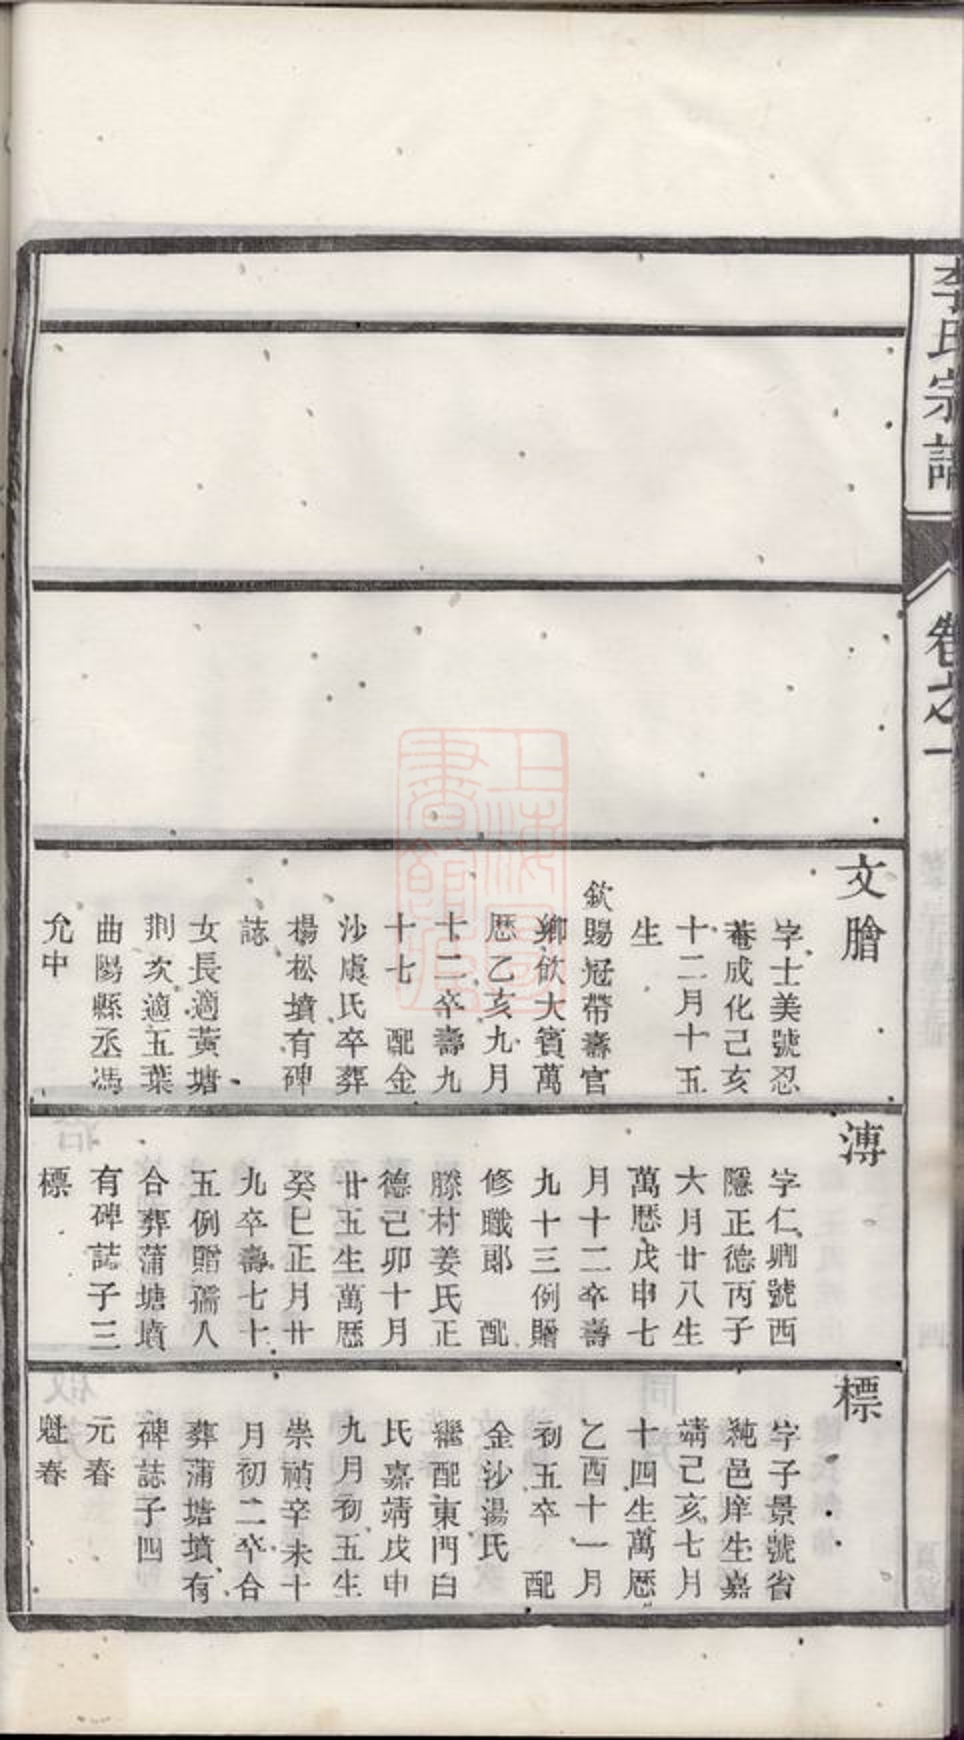 李氏宗譜
卷之一
文膾
字士美號忍
菴成化己亥
十二月十五
生
欽賜冠帶壽官
鄉飲大賓萬
歷乙亥九月
十二卒壽九
十七　配金
沙虞氏卒葬
楊松墳有碑
誌
女長適黃塘
荆次適五葉
曲陽縣丞馮
允中
溥
字仁卿號西
隱正德丙子
六月廿八生
萬歷戊申七
月十二卒壽
九十三例贈
修職郎　配
滕村姜氏正
德己卯十月
廿五生萬歷
癸巳正月廿
九卒壽七十
五例贈孺人
合葬蒲塘墳
有碑誌子三
標
標
字子景號省
純邑庠生嘉
靖己亥七月
十四生萬歷
乙酉十一月
初五卒　配
金沙湯氏
繼配東門白
氏嘉靖戊申
九月初五生
崇禎辛未十
月初二卒合
葬蒲塘墳有
碑誌子四
元春
魁春
上海圖書館藏